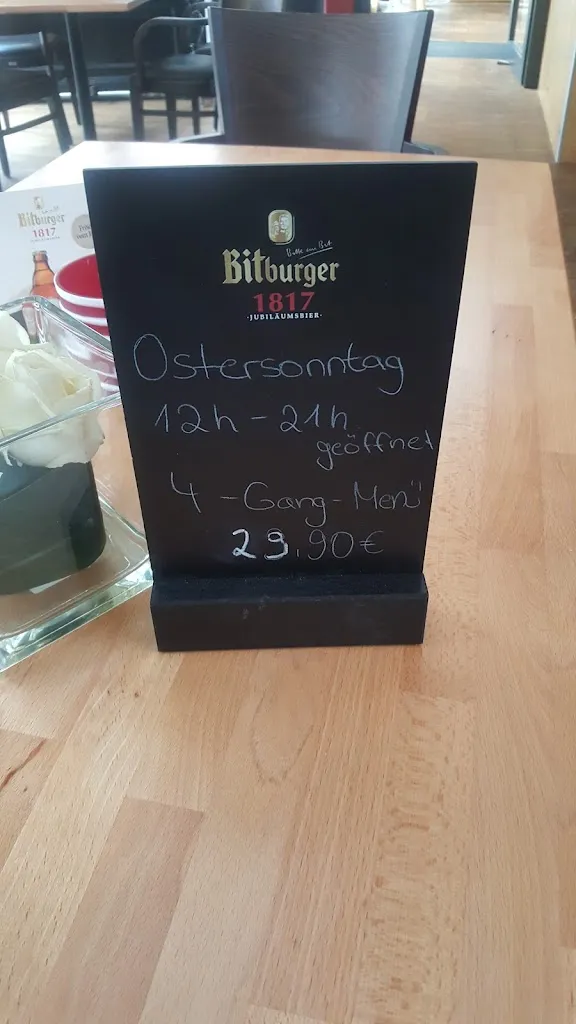 Bitte ein Bit
Bitburger
1817
·JUBILÄUMSBIER·
Ostersonntag
12h - 21h
geöffnet
4 - Gang - Menü
29,90€
Bitburger
1817
JUBILÄUMSBIER